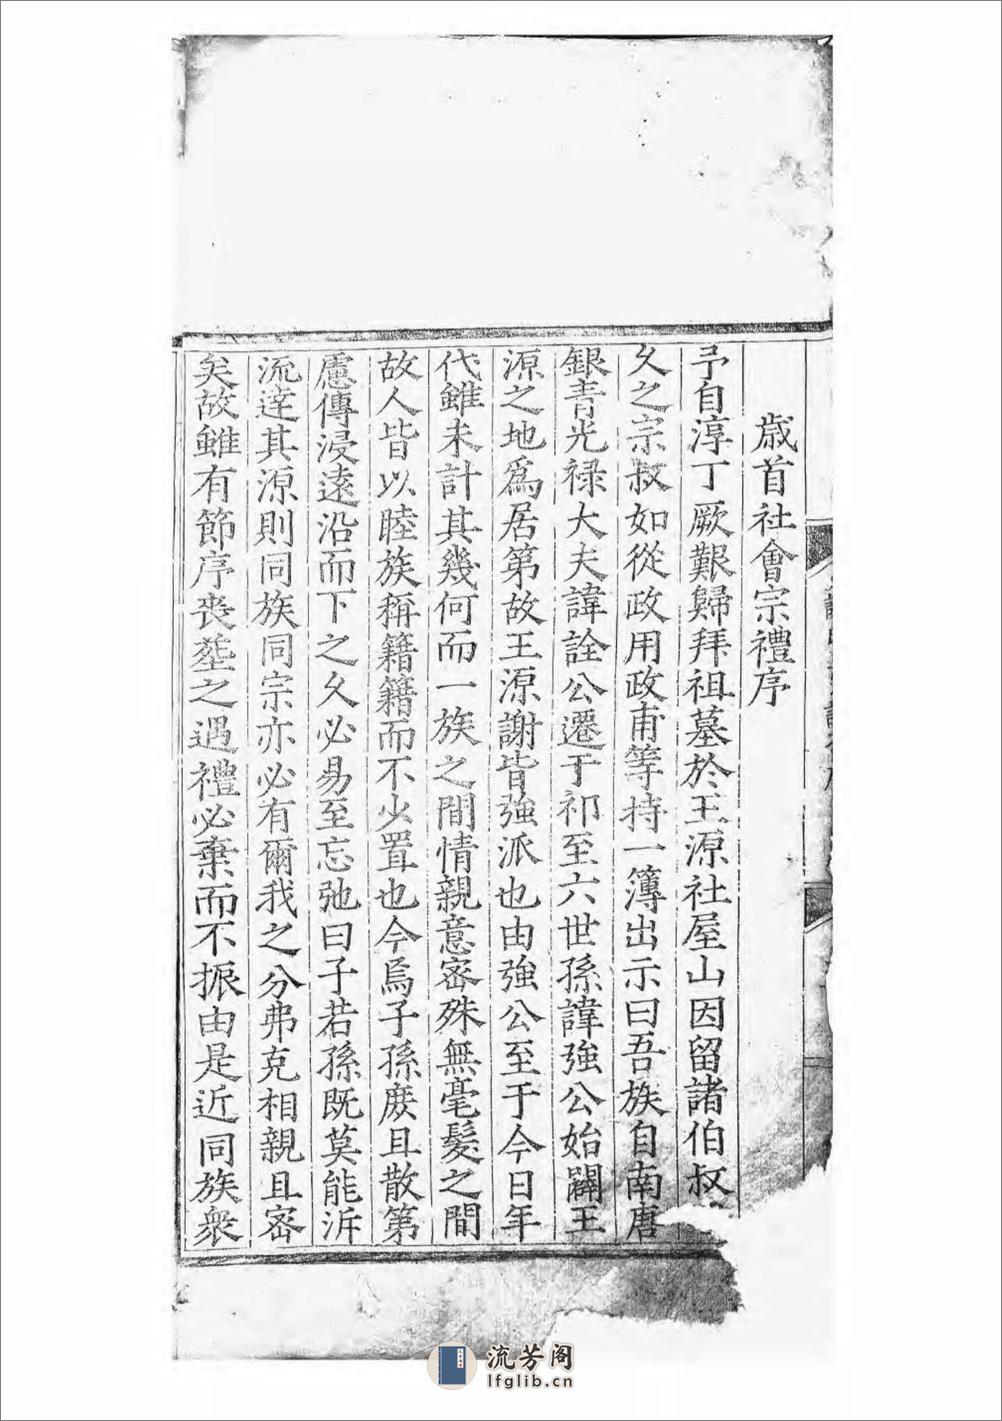 歲首社會宗禮序
予自淳丁厥艱歸拜祖墓於王源社屋山因留諸伯叔
久之宗叔如從政用政甫等持一簿出示曰吾族自南唐
銀青光禄大夫諱詮公遷于祁至六世孫諱強公始闢王
源之地爲居第故王源謝皆強派也由強公至于今日年
代雖未計其幾何而一族之間情親意宻殊無毫髮之間
故人皆以睦族稱籍籍而不少置也今焉子孫庻且散第
慮傳浸遠沿而下之久必易至忘弛曰子若孫既莫能泝
流逹其源則同族同宗亦必有爾我之分弗克相親且宻
矣故雖有節序喪塟之遇禮必棄而不振由是近同族衆
流芳阁
lfglib.cn